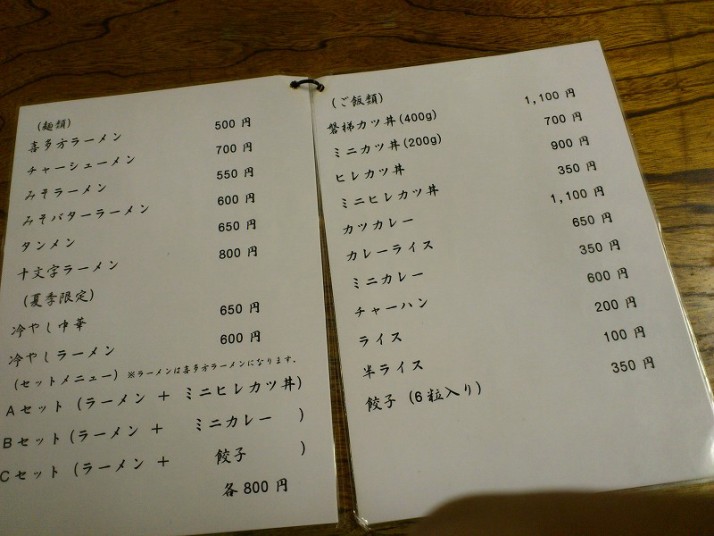 (麺類)
喜多方ラーメン 500 円
チャーシューメン 700 円
みそラーメン 550 円
みそバターラーメン 600 円
タンメン 650 円
十文字ラーメン 800 円
(夏季限定)
冷やし中華 650 円
冷やしラーメン 600 円
(セットメニュー) ※ラーメンは喜多方ラーメンになります。
Aセット (ラーメン + ミニヒレカツ丼)
Bセット (ラーメン + ミニカレー )
Cセット (ラーメン + 餃子 )
各800 円
(ご飯類)
磐梯カツ丼(400g) 1,100 円
ミニカツ丼(200g) 700 円
ヒレカツ丼 900 円
ミニヒレカツ丼 350 円
カツカレー 1,100 円
カレーライス 650 円
ミニカレー 350 円
チャーハン 600 円
ライス 200 円
半ライス 100 円
餃子 (6粒入り) 350 円